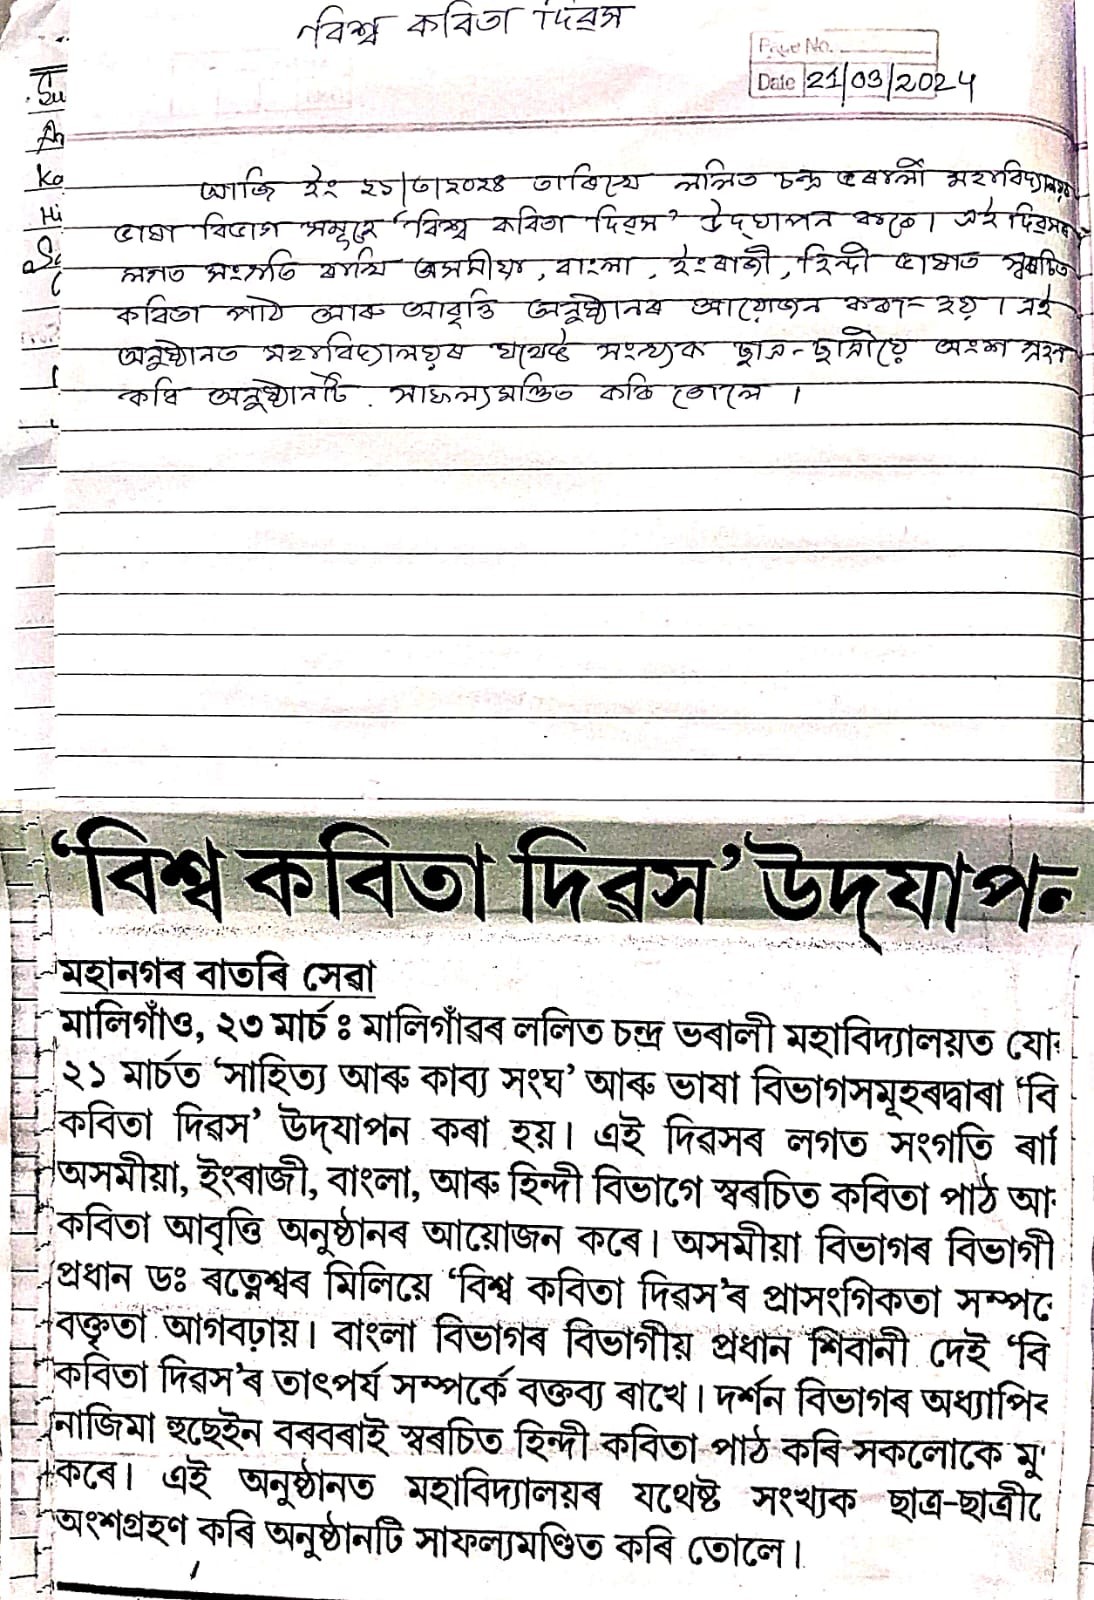 বিশ্ব কবিতা দিৱস
Page No.
Date 21/03/2024
Su
An
Ka
Hi
আজি ইং ২১/৩/২০২৪ তাৰিখে ললিত চন্দ্ৰ ভৰালী মহাবিদ্যালয়ৰ
ভাষা বিভাগ সমূহে 'বিশ্ব কবিতা দিৱস' উদ্‌যাপন কৰে। এই দিৱসৰ
লগত সংগতি ৰাখি অসমীয়া, বাংলা, ইংৰাজী, হিন্দী ভাষাত স্বৰচিত
কবিতা পাঠ আৰু আবৃত্তি অনুষ্ঠানৰ আয়োজন কৰা হয়। এই
অনুষ্ঠানত মহাবিদ্যালয়ৰ যথেষ্ট সংখ্যক ছাত্ৰ-ছাত্ৰীয়ে অংশ গ্ৰহণ
কৰি অনুষ্ঠানটি সাফল্যমণ্ডিত কৰি তোলে।
'বিশ্ব কবিতা দিৱস' উদ্‌যাপন
মহানগৰ বাতৰি সেৱা
মালিগাঁও, ২৩ মাৰ্চ ঃ মালিগাঁৱৰ ললিত চন্দ্ৰ ভৰালী মহাবিদ্যালয়ত
২১ মাৰ্চত 'সাহিত্য আৰু কাব্য সংঘ' আৰু ভাষা বিভাগসমূহৰদ্বাৰা 'বি
কবিতা দিৱস' উদ্‌যাপন কৰা হয়। এই দিৱসৰ লগত সংগতি
অসমীয়া, ইংৰাজী, বাংলা, আৰু হিন্দী বিভাগে স্বৰচিত কবিতা পাঠ আ
কবিতা আবৃত্তি অনুষ্ঠানৰ আয়োজন কৰে। অসমীয়া বিভাগৰ বিভাগী
প্ৰধান ডঃ ৰত্নেশ্বৰ মিলিয়ে 'বিশ্ব কবিতা দিৱস'ৰ প্ৰাসংগিকতা
বক্তৃতা আগবঢ়ায়। বাংলা বিভাগৰ বিভাগীয় প্ৰধান শিবানী দেই 'বি
কবিতা দিৱস'ৰ তাৎপৰ্য সম্পৰ্কে বক্তব্য ৰাখে। দৰ্শন বিভাগৰ
নাজিমা হুছেইন বৰবৰাই স্বৰচিত হিন্দী কবিতা পাঠ কৰি সকলোকে মু
কৰে। এই অনুষ্ঠানত মহাবিদ্যালয়ৰ যথেষ্ট সংখ্যক
অংশগ্ৰহণ কৰি অনুষ্ঠানটি সাফল্যমণ্ডিত কৰি তোলে।